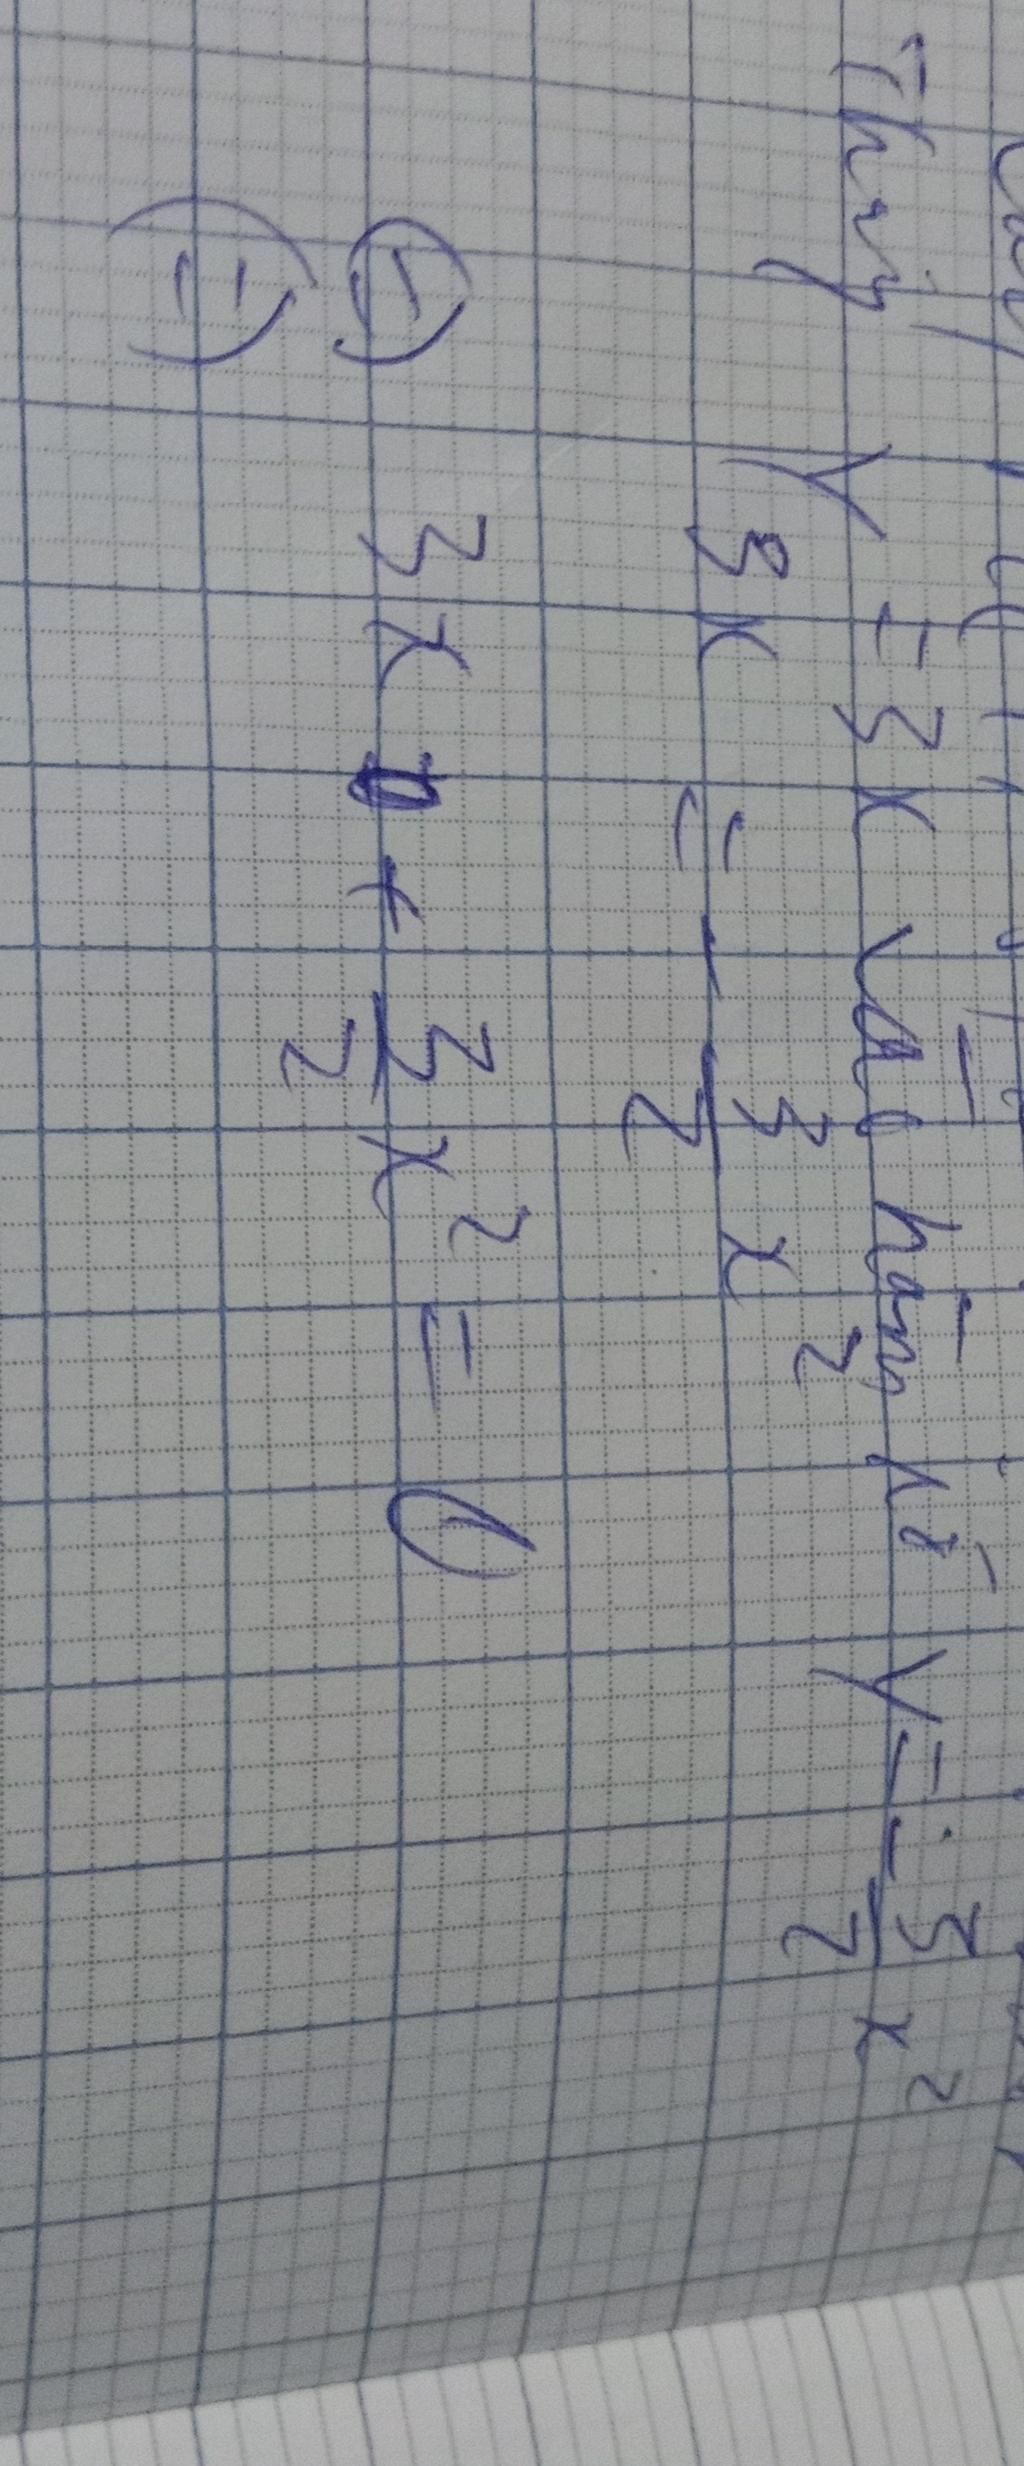 Thay y = 3x vào hàm số y = -3/2 x²
3x = - 3/2 x²
(=) 3x + 3/2 x² = 0
(=)